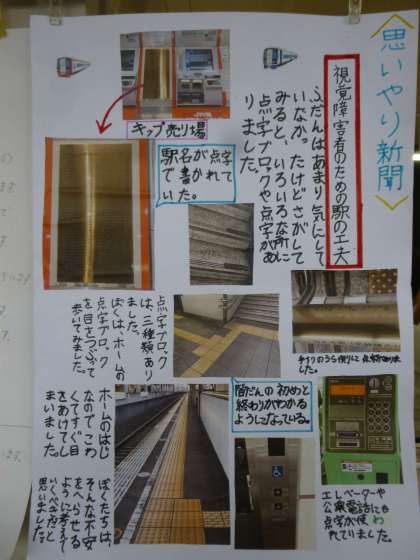 〈思いやり新聞〉
視覚障害者のための駅の工夫
ふだんはあまり気にして
いなかったけどさがして
みると、いろいろな所に
点字ブロックや点字があ
りました。
キップ売り場
駅名が点字
で書かれて
いた。
手すりのうら側りに点字がありま
した。
点字ブロック
は、三種類あり
ました。
ぼくは、ホームの
点字ブロック
を目をつぶって
歩いてみました。
階だんの初めと
終わりがわかる
ようになっている。
エレベーターや
公衆電話にも
点字が使わ
れていました。
ホームのはじ
なのでこわ
くてすぐ目
をあけてし
まいました。
ぼくたちは、
そんな不安
をへらせる
ように考えて
いくべきだと
思いました。